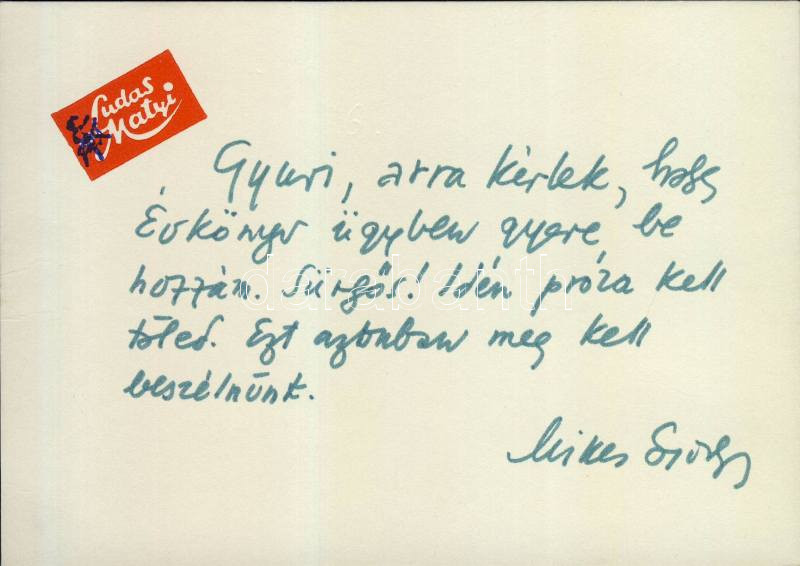 Ludas
Matyi
Gyuri, arra kérlek, hogy
Évkönyv ügyben gyere be
hozzám. Sürgős! Idén próza kell
tőled. Ezt azonban meg kell
beszélnünk.
Mikes György
darabanth